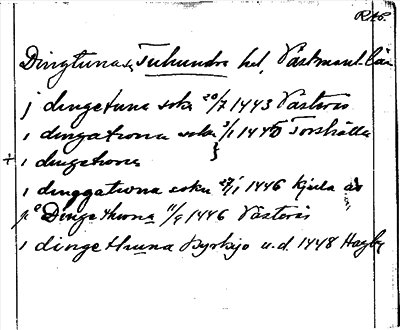 RAp.
Dingtuna s, Tuhundra hd, Västmanl. län
j dingetuna sokn 20/7 1443 Västerås
i dingatwna sokn 3/1 1445 Torshälla
+ i dingatwna }
i dinggatwna sokn 27/1 1446 Kjula
på Dinge thwna 11/9 1446 Västerås
i dinge thuna kyrkijo u.d. 1448 Hagby